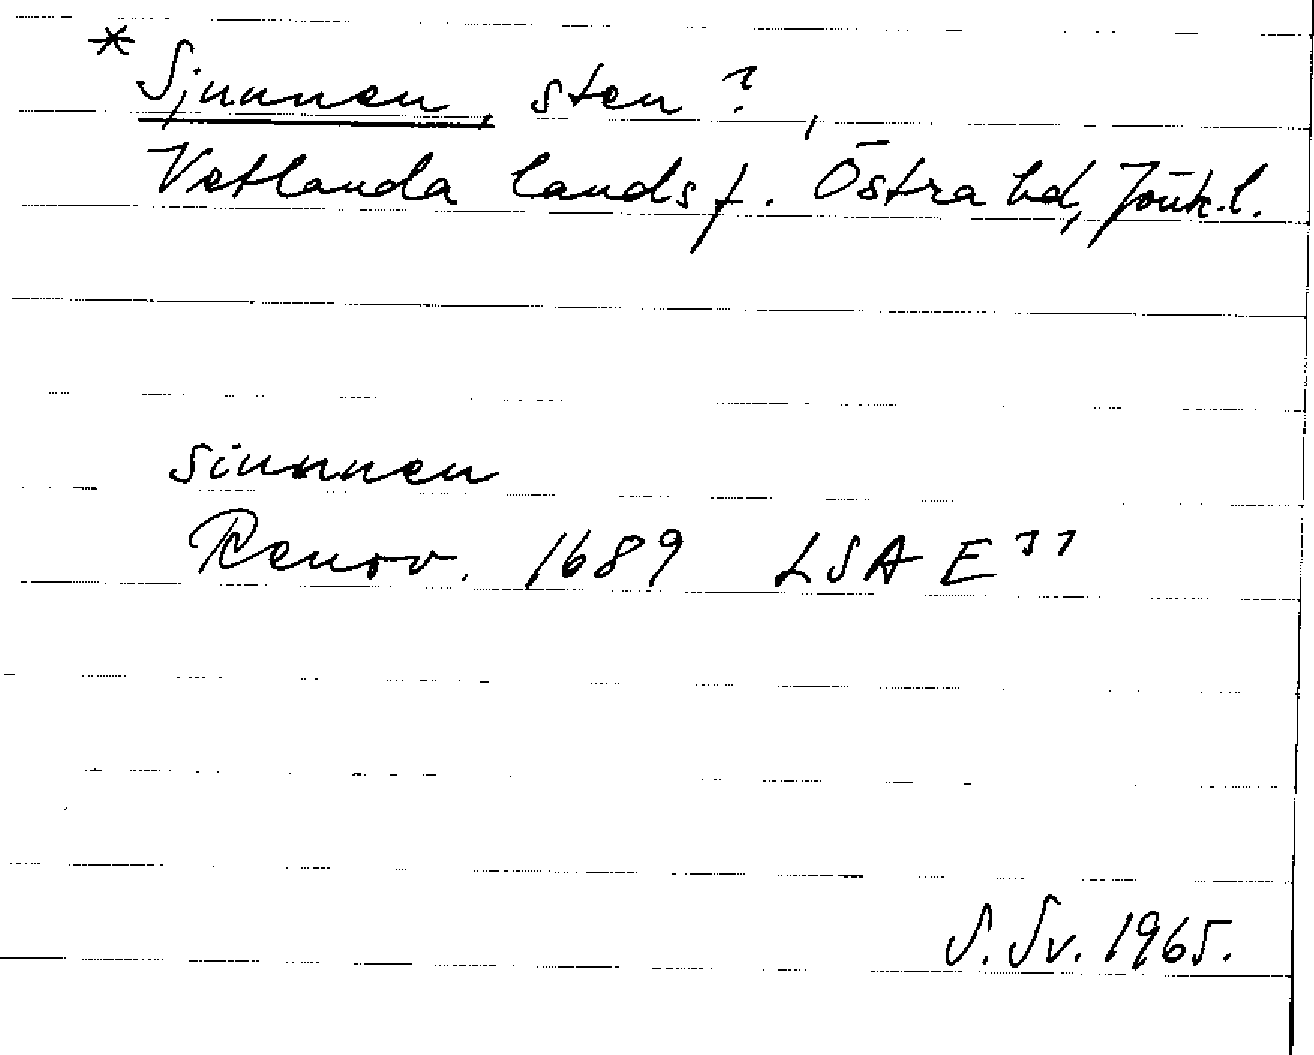 * Sjunnen, sten?,
Vetlanda landsf. Östra hd, Jönk.l.
siunnen
Renov. 1689 LSA E 77
S. Sv. 1965.